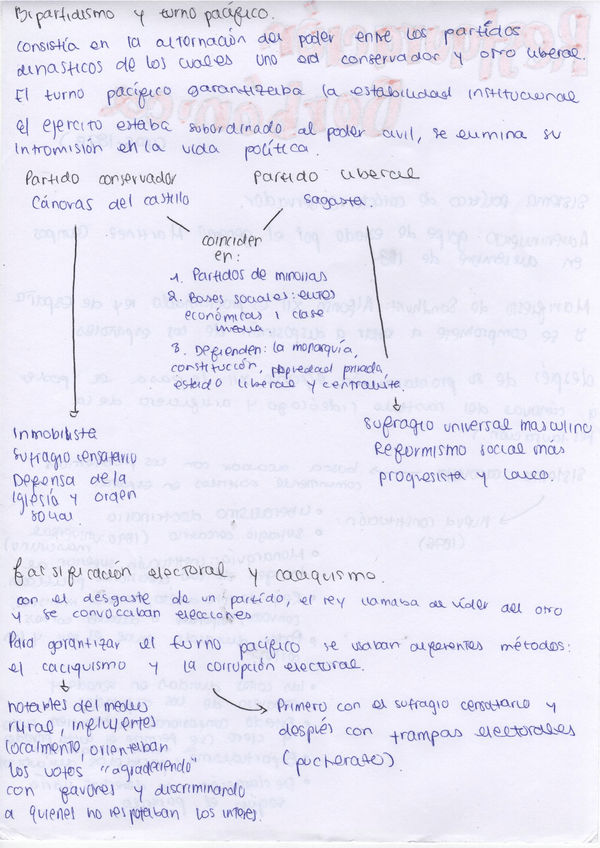 Bipartidismo y turno pacífico.
consistía en la alternación del poder entre los partidos
dinasticos de los cuales uno era conservador y otro liberal.
El turno pacífico garantizaba la estabilidad institucional
el ejercito estaba subordinado al poder civil, se elimina su
intromisión en la vida política.
Partido conservador
Cánovas del castillo
Partido liberal
Sagasta.
coinciden
en:
1. Partidos de minorias
2. Bases sociales: elites
económicas y clase
media.
3. Defienden: la monarquía,
constitución, propiedad privada,
estado liberal y centralista.
Inmobilista
Sufragio censatario
Defensa de la
Iglesia y orden
social.
Sufragio universal masculino
Reformismo social más
progresista y laico.
Falsificación electoral y caciquismo.
con el desgaste de un partido, el rey llamaba al líder del otro
y se convocaban elecciones
Para garantizar el turno pacífico se usaban diferentes métodos:
el caciquismo y la corrupción electoral.
notables del medio
rural, influyentes
localmente, orientaban
los votos "agradeciendo"
con favores y discriminando
a quienes no respetaban los interes.
Primero con el sufragio censitario y
después con trampas electorales
(pucherazo).